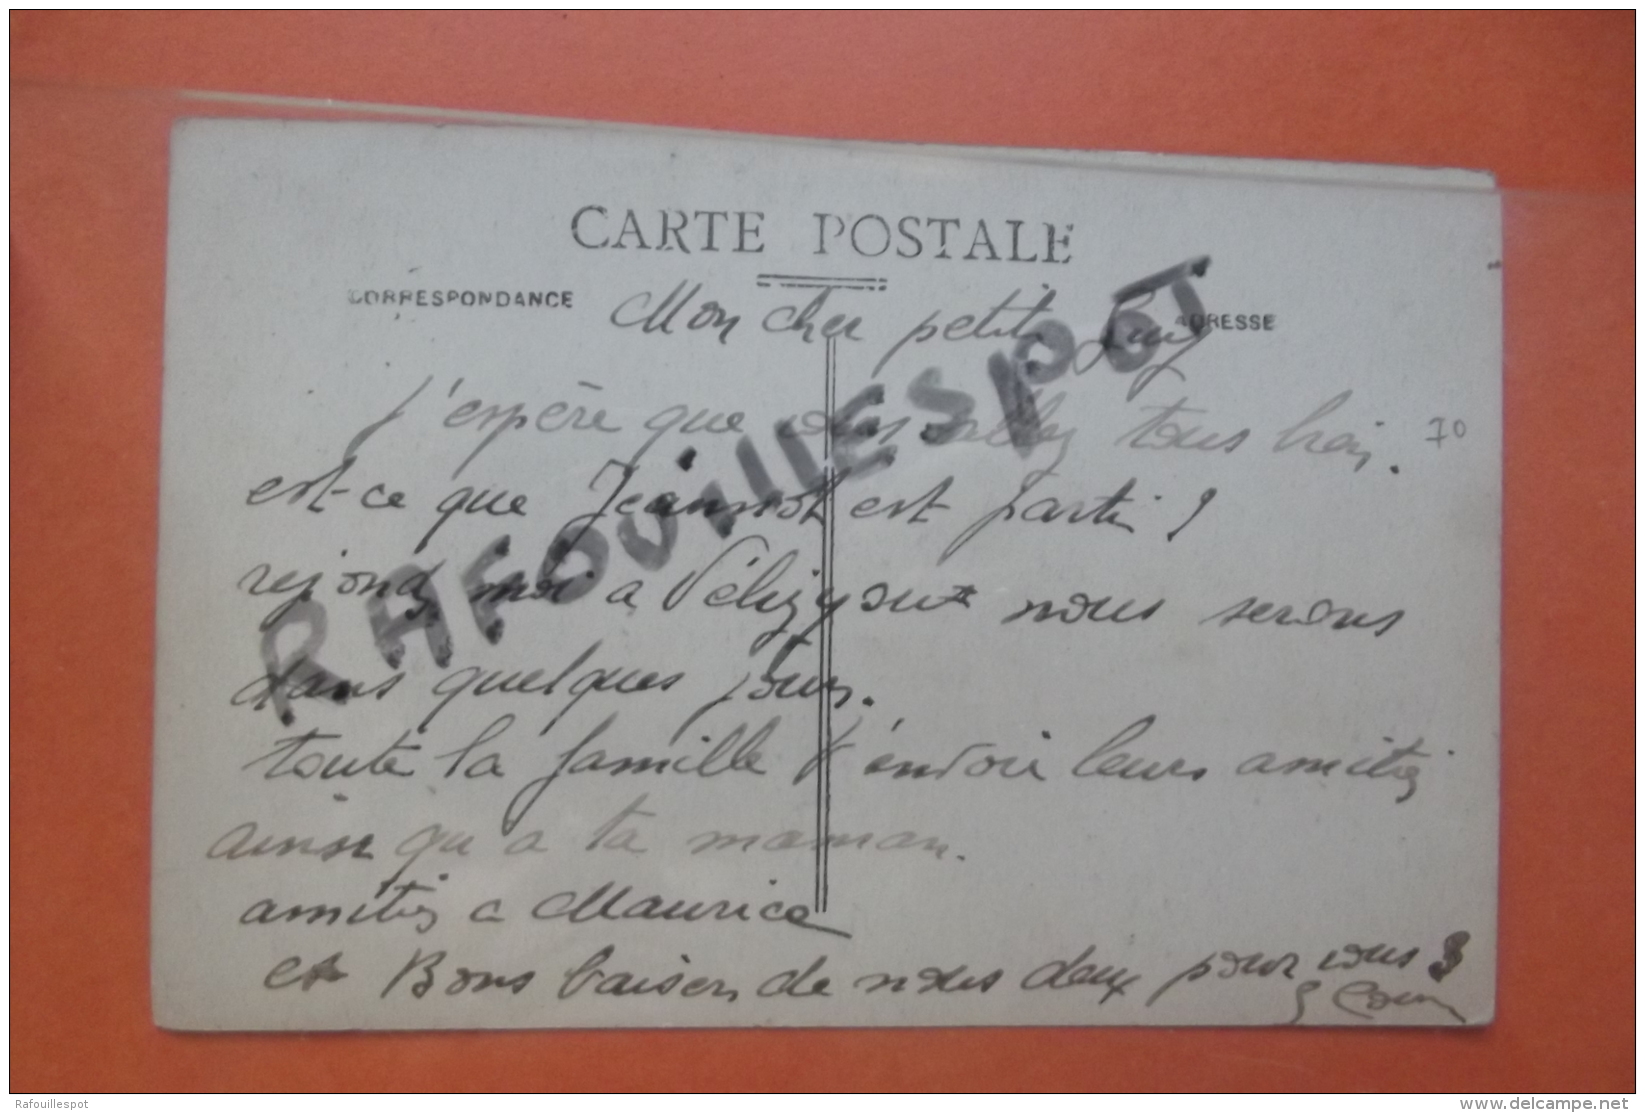 CARTE POSTALE
CORRESPONDANCE
ADRESSE
Mon cher petit Guy
j'espère que vous allez tous bien.
70
est-ce que Jeannot est parti ?
rejond moi a Vélizy ou nous serons
dans quelques jours.
toute la famille t'envoie leurs amitiés
ainsi qu a ta maman.
amitiés a Maurice
et Bons baisers de nous deux pour vous 3
RAFOUILLESPOT
Rafouillespot
www.delcampe.net